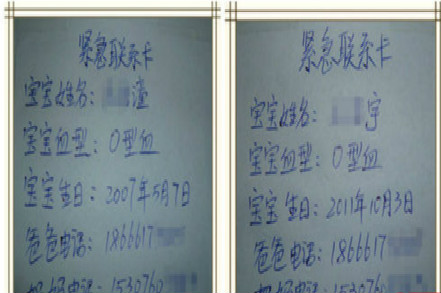 紧急联系卡
宝宝姓名: 滢
宝宝血型: O型血
宝宝生日: 2007年5月7日
爸爸电话: 1866617
妈妈电话: 1530760
紧急联系卡
宝宝姓名: 宇
宝宝血型: O型血
宝宝生日: 2011年10月3日
爸爸电话: 1866617
妈妈电话: 1530760